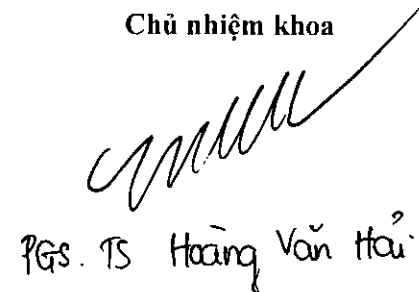 Chủ nhiệm khoa
PGS. TS Hoàng Văn Hải